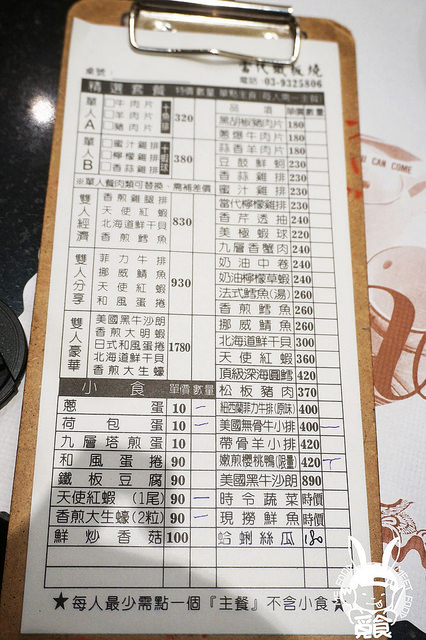 當代鐵板燒
桌號: 電話:03-9325806
精選套餐 特價 數量
單人A
□牛肉片
□羊肉片
□豬肉片
320
單人B
□蜜汁雞排
□檸檬雞排
□香蒜雞排
380
※單人餐肉類可替換,需補差價
雙人經濟
香煎雞腿排
天使紅蝦
北海道鮮干貝
香煎鱈魚
830
雙人分享
菲力牛排
挪威鯖魚
天使紅蝦
和風蛋捲
930
雙人豪華
美國黑牛沙朗
香煎大明蝦
日式和風蛋捲
北海道鮮干貝
香煎大生蠔
1780
小食 單價 數量
蔥蛋 10 一
荷包蛋 10 一
九層塔煎蛋 10
和風蛋捲 90
鐵板豆腐 90
天使紅蝦(1尾) 90 一
香煎大生蠔(2粒) 90 一
鮮炒香菇 100
單點主餐(每人需一主餐)
品項 單價 數量
黑胡椒豬肉片 180
蔥爆牛肉片 180
蒜香羊肉片 180
豆鼓鮮蚵 230
香蒜雞排 230
蜜汁雞排 230
當代檸檬雞排 230
香芹透抽 240
美極蝦球 220
九層香蟹肉 240
奶油中卷 240
奶油檸檬草蝦 240
法式鱈魚(湯) 260
香煎鱈魚 260
挪威鯖魚 260
北海道鮮干貝 300
天使紅蝦 360
頂級深海圓鱈 420
松板豬肉 370
紐西蘭菲力牛排(原味) 400
美國無骨牛小排 400 一
帶骨羊小排 420
嫩煎櫻桃鴨(限量) 420
美國黑牛沙朗 890
時令蔬菜 時價
現撈鮮魚 時價
蛤蜊絲瓜 180
★每人最少需點一個『主餐』不含小食★
U CAN COME
覓食